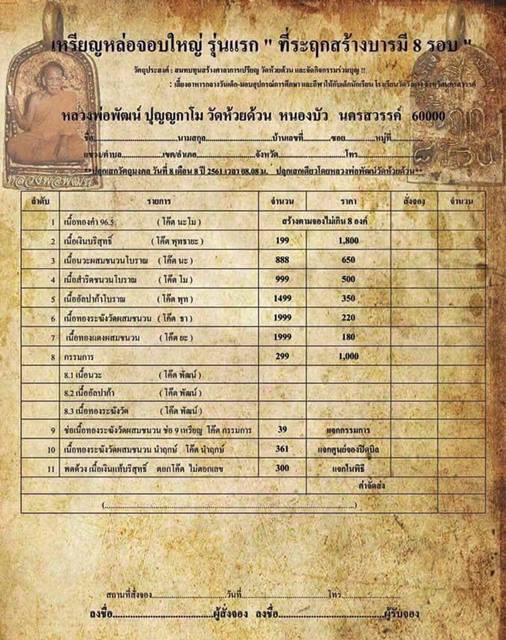 เหรียญหล่อจอบใหญ่ รุ่นแรก " ที่ระฤกสร้างบารมี 8 รอบ "
วัตถุประสงค์ : สมทบทุนสร้างศาลาการเปรียญ วัดห้วยด้วน และจัดกิจกรรมร่วมบุญ !!
: เลี้ยงอาหารกลางวันเด็ก-มอบอุปกรณ์การศึกษา และกีฬาให้กับเด็กนักเรียน
หลวงพ่อพัฒน์ ปุญญกาโม วัดห้วยด้วน หนองบัว นครสวรรค์ 60000
ชื่อ..............................นามสกุล..............................บ้านเลขที่..............ซอย..............หมู่ที่..............
แขวง/ตำบล..............................เขต/อำเภอ..............................จังหวัด..............................โทร..............................
**ปลุกเสกวัตถุมงคล วันที่ 8 เดือน 8 ปี 2561 เวลา 08.08 น. ปลุกเสกเดี่ยวโดยหลวงพ่อพัฒน์วัดห้วยด้วน**
หลวงพ่อพัฒน์
ลำดับ รายการ จำนวน ราคา สั่งจอง จำนวน
1 เนื้อทองคำ 96.5 ( โค๊ด นะโม ) สร้างตามจองไม่เกิน 8 องค์
2 เนื้อเงินบริสุทธิ์ ( โค๊ด พุทธายะ ) 199 1,800
3 เนื้อนวะผสมชนวนโบราณ ( โค๊ด นะ ) 888 650
4 เนื้อสำริดชนวนโบราณ ( โค๊ด โม ) 999 500
5 เนื้ออัลปาก้าโบราณ ( โค๊ด พุท ) 1499 350
6 เนื้อทองระฆังวัดผสมชนวน ( โค๊ด ธา ) 1999 220
7 เนื้อทองแดงผสมชนวน ( โค๊ด ยะ ) 1999 180
8 กรรมการ 299 1,000
8.1 เนื้อนวะ ( โค๊ด พัฒน์ )
8.2 เนื้ออัลปาก้า ( โค๊ด พัฒน์ )
8.3 เนื้อทองระฆังวัด ( โค๊ด พัฒน์ )
9 ช่อเนื้อทองระฆังวัดผสมชนวน ช่อ 9 เหรียญ โค๊ด กรรมการ 39 แจกกรรมการ
10 เนื้อทองระฆังวัดผสมชนวน นำฤกษ์ โค๊ด นำฤกษ์ 361 แจกศูนย์จองปิดบิล
11 พดด้วง เนื้อเงินแท้บริสุทธิ์ ตอกโค๊ด ไม่ตอกเลข 300 แจกในพิธี
ค่าจัดส่ง
(............................................................)
สถานที่สั่งจอง..............................วันที่..............................โทร..............................
ลงชื่อ..............................ผู้สั่งจอง ลงชื่อ..............................ผู้รับจอง